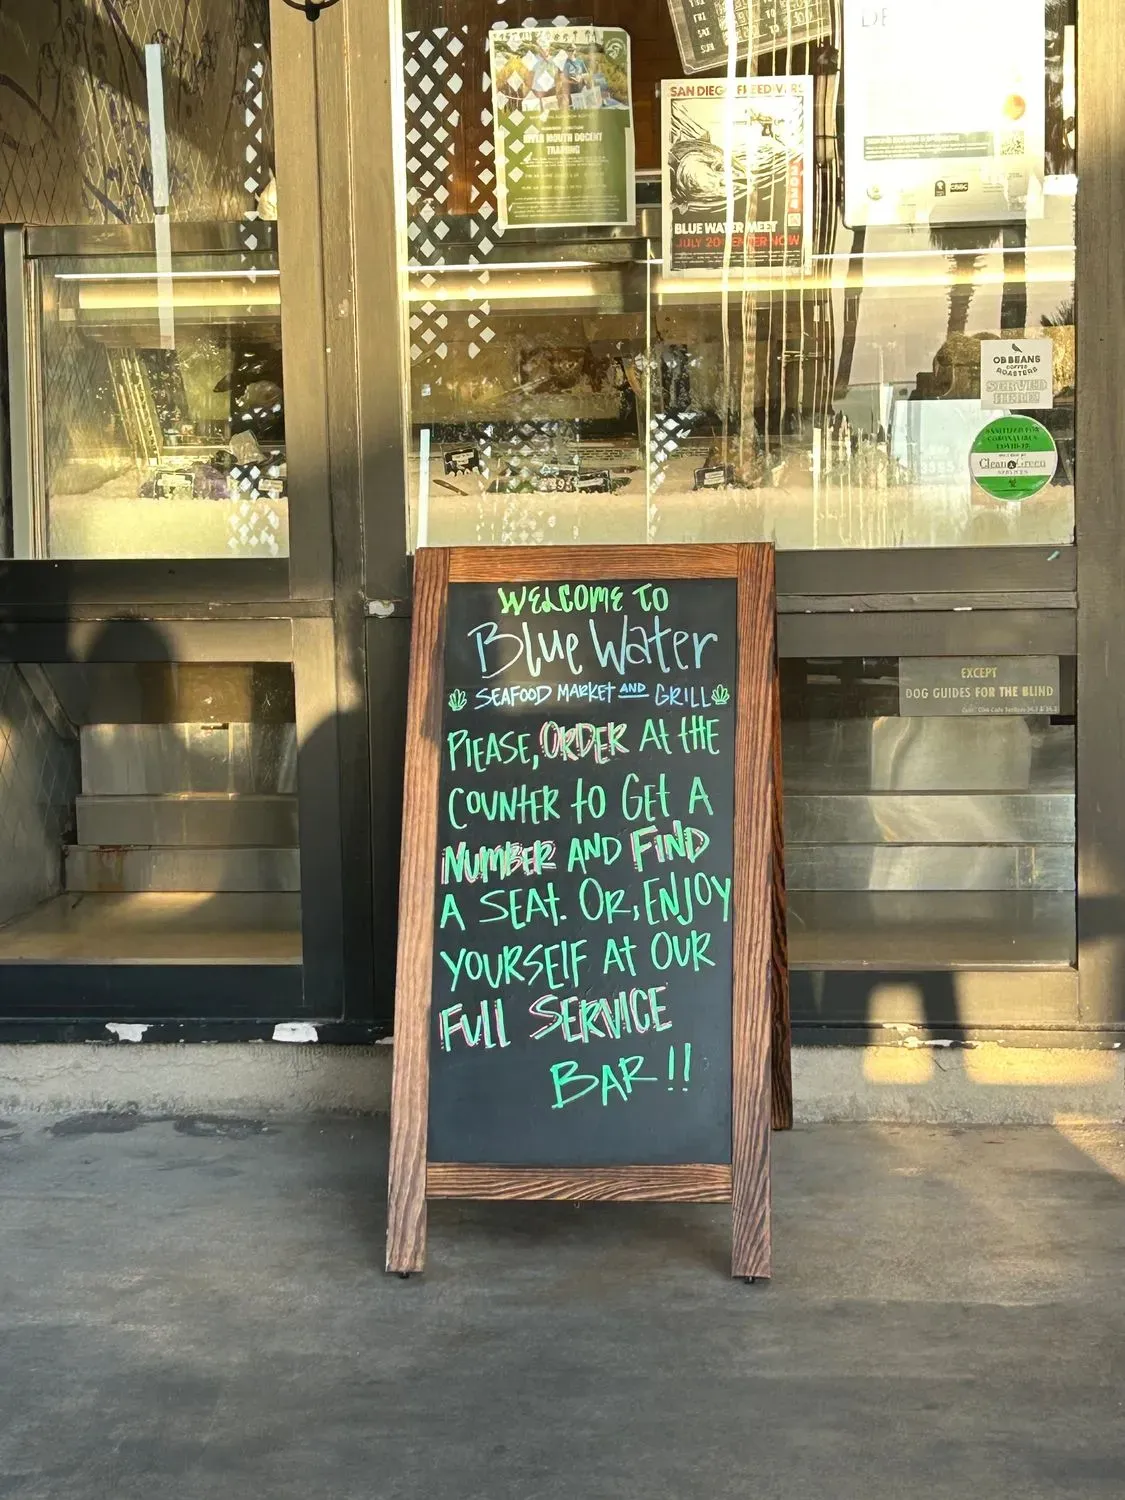 RIVER MOUTH DOCENT
TRAINING
SAN DIEGO FREEDIVERS
2024
BLUE WATER MEET
JULY 20 ENTER NOW
OB BEANS
COFFEE
ROASTERS
SERVED
HERE!
SANITIZED FOR
CORONAVIRUS
COVID-19
Clean & Green
SERVICES
EXCEPT
DOG GUIDES FOR THE BLIND
WELCOME TO
Blue Water
SEAFOOD MARKET AND GRILL
PLEASE, ORDER At tHE
COUNTER tO GEt A
NUMBER AND FIND
A SEAt. OR, ENJOY
YOURSELF At OUR
FULL SERVICE
BAR!!